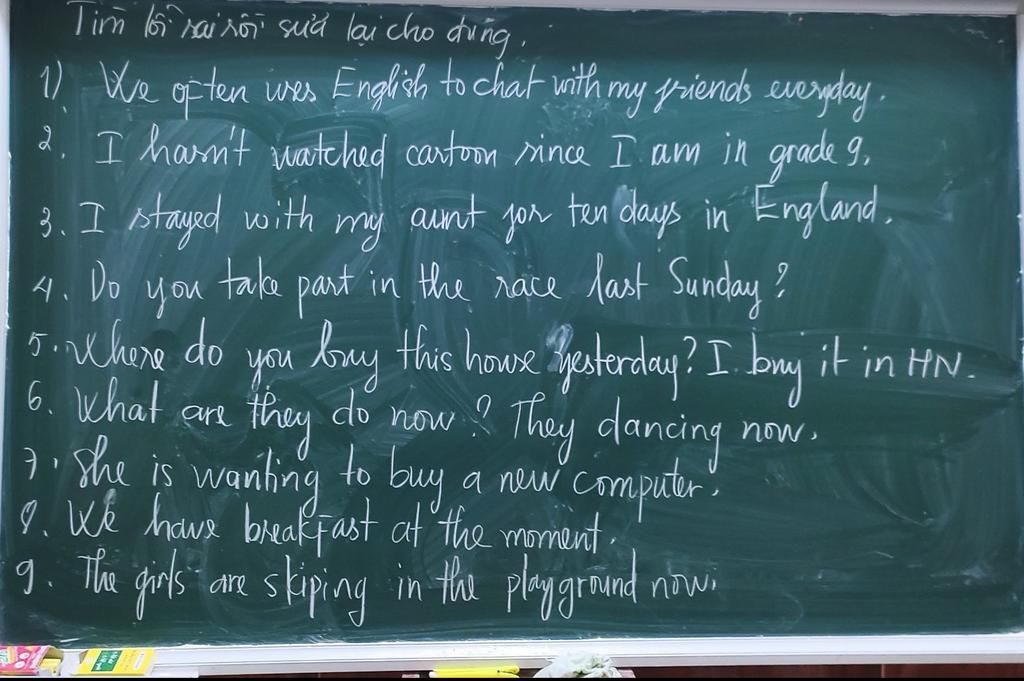 Tìm lỗi sai rồi sửa lại cho đúng.
1). We often uses English to chat with my friends everyday.
2. I hasn't watched cartoon since I am in grade 9.
3. I stayed with my aunt for ten days in England.
4. Do you take part in the race last Sunday?
5. Where do you buy this house yesterday? I buy it in HN.
6. What are they do now? They dancing now.
7. She is wanting to buy a new computer.
8. We have breakfast at the moment.
9. The girls are skiping in the playground now.